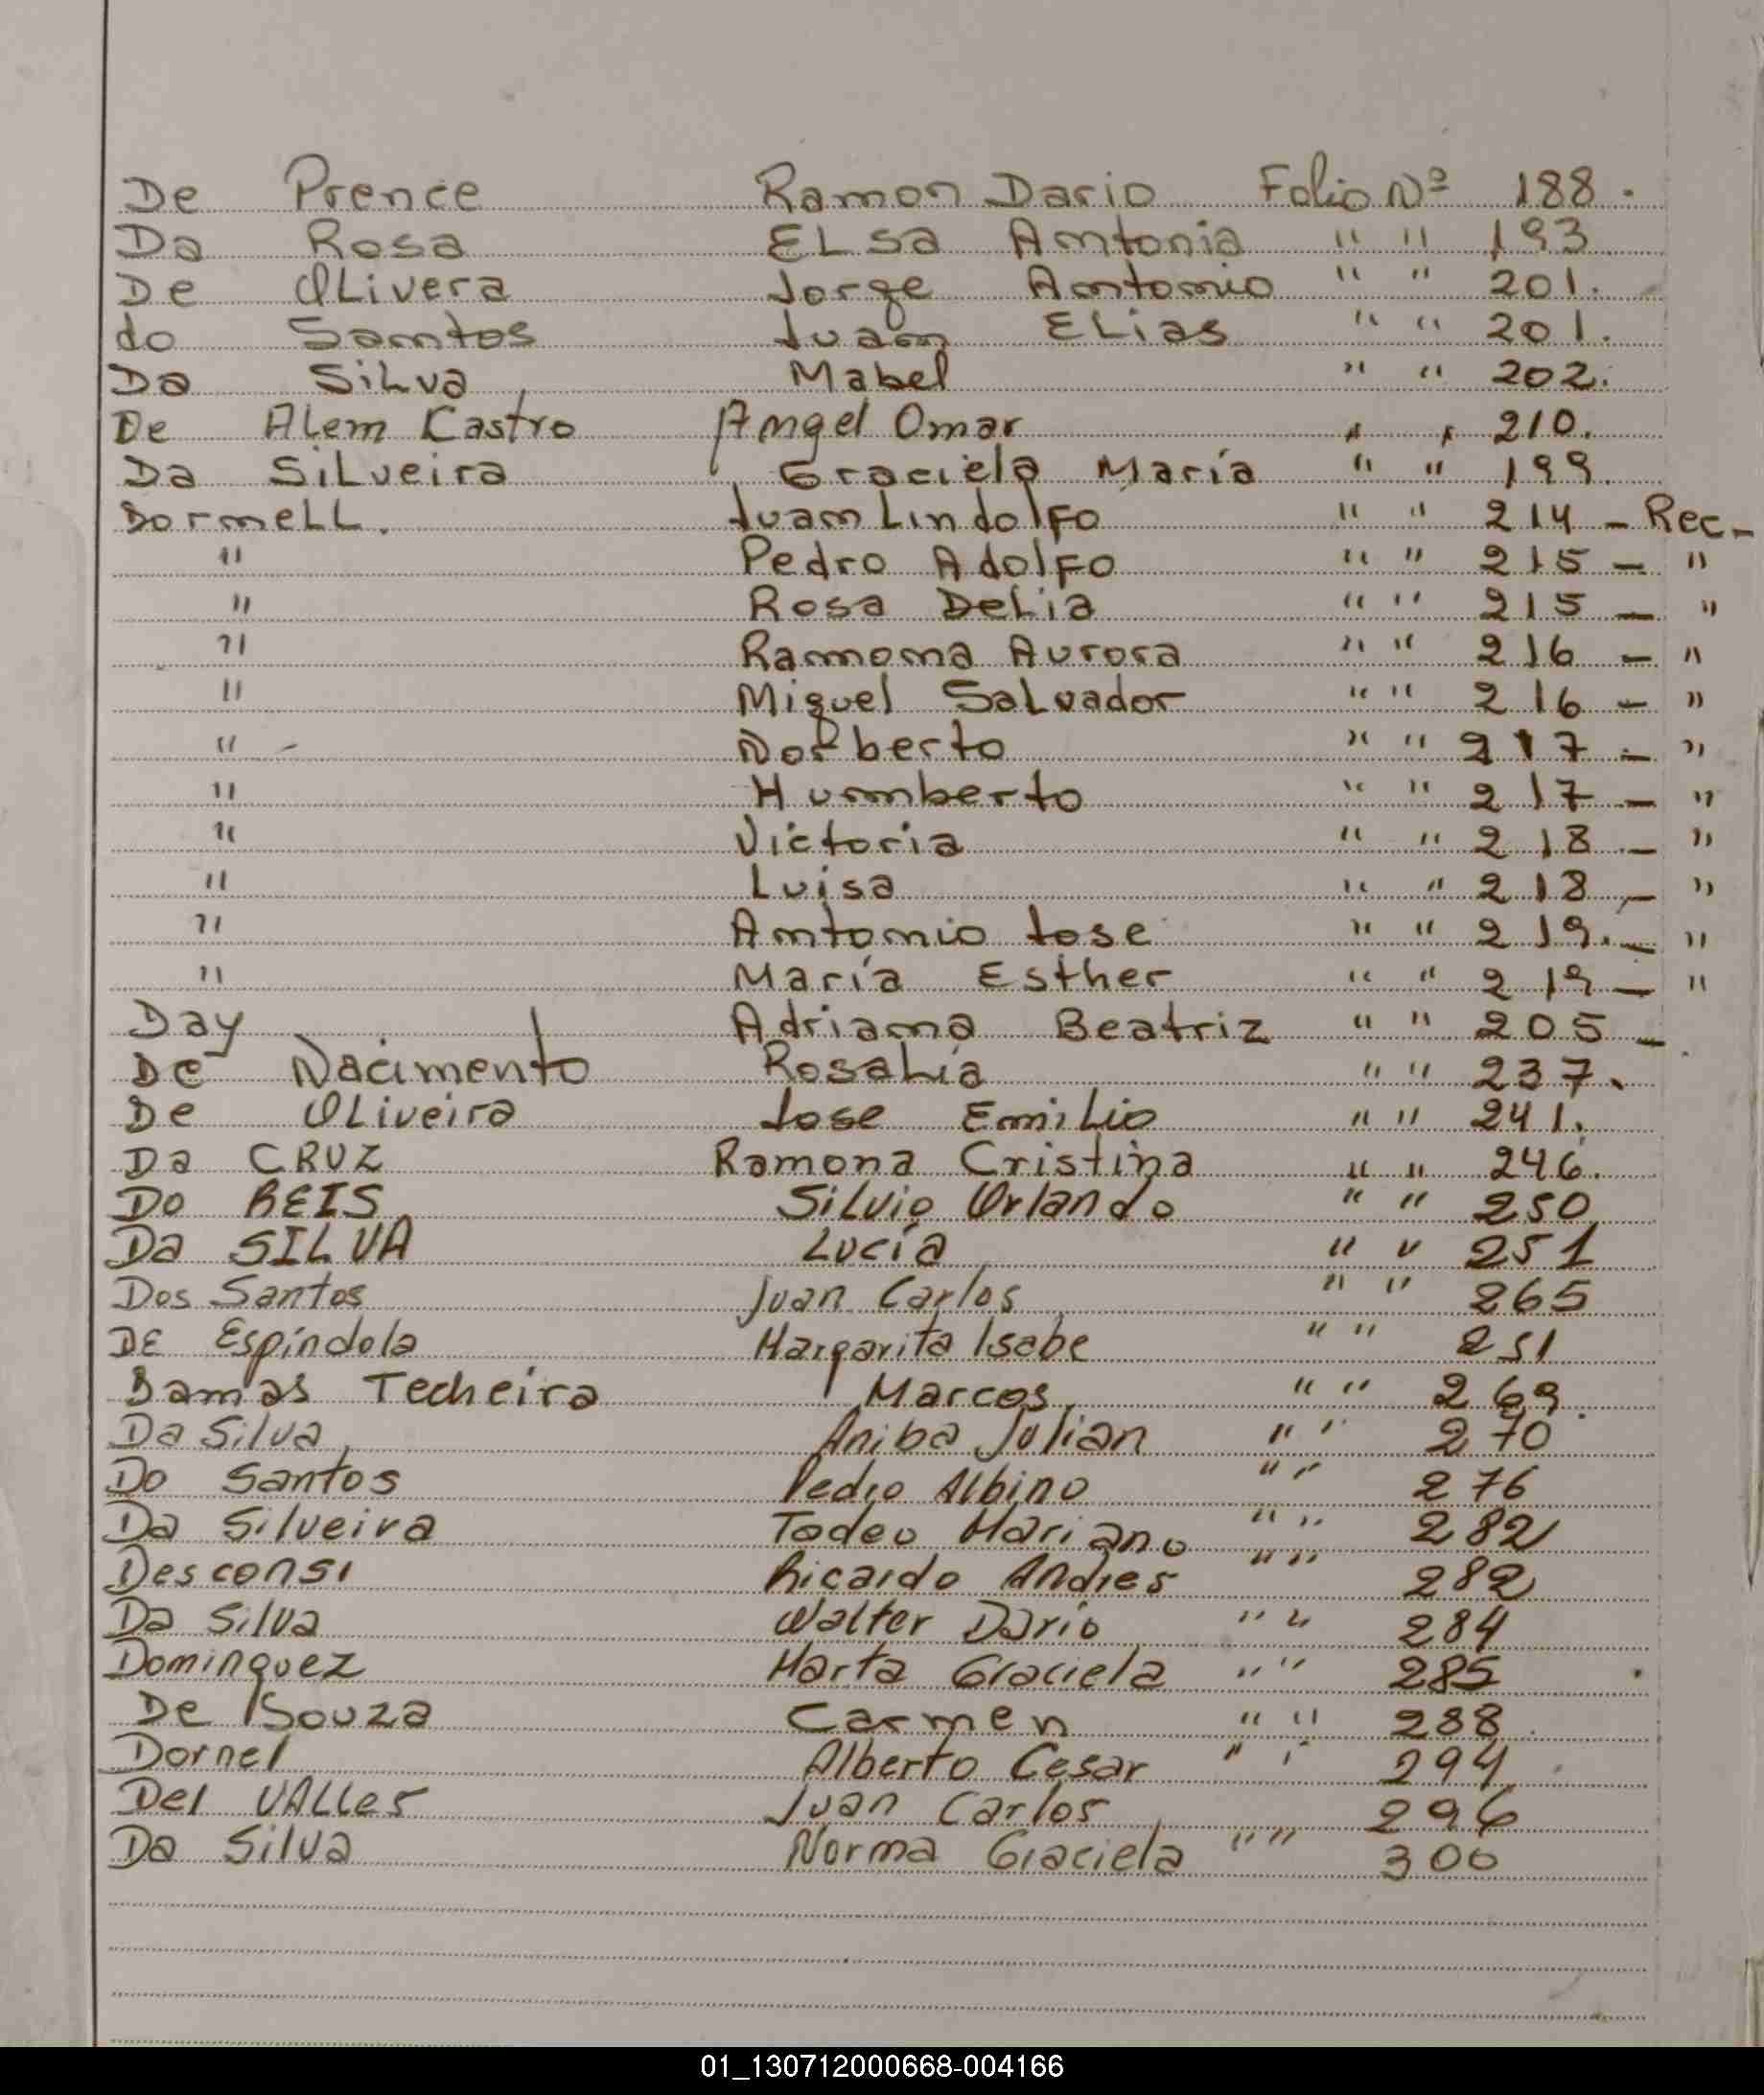 De Prence Ramon Dario Folio Nº 188.
Da Rosa Elsa Antonia " " 193
De Olivera Jorge Antonio " " 201.
do Santos Juan Elias " " 201.
Da Silva Mabel " " 202.
De Alem Castro Angel Omar " " 210.
Da Silveira Graciela María " " 199.
Dornell. Juan Lindolfo " " 214 - Rec -
" Pedro Adolfo " " 215 - "
" Rosa Delia " " 215 - "
" Ramona Aurora " " 216 - "
" Miguel Salvador " " 216 - "
" - Norberto " " 217 - "
" Humberto " " 217 - "
" Victoria " " 218 - "
" Luisa " " 218 - "
" Antonio Jose " " 219. - "
" María Esther " " 219 - "
Day Adriana Beatriz " " 205 -
De Nacimento Rosalia " " 237.
De Oliveira Jose Emilio " " 241.
Da CRUZ Ramona Cristina " " 246.
Do REIS Silvio Orlando " " 250
Da SILVA Lucía " " 251
Dos Santos Juan Carlos " " 265
DE Espíndola Margarita Isabe " " 251
Damas Techeira Marcos " " 269.
Da Silva Aniba Julian " " 270
Do Santos Pedro Albino " " 276
Da Silveira Tadeo Mariano " " 282
Desconsi Ricardo Andres " " 282
Da Silva Walter Dario " " 284
Dominguez Marta Graciela " " 285
De Souza Carmen " " 288
Dornel Alberto Cesar " " 294
Del VAlles Juan Carlos 296
Da Silva Norma Graciela " " 300
01_130712000668-004166